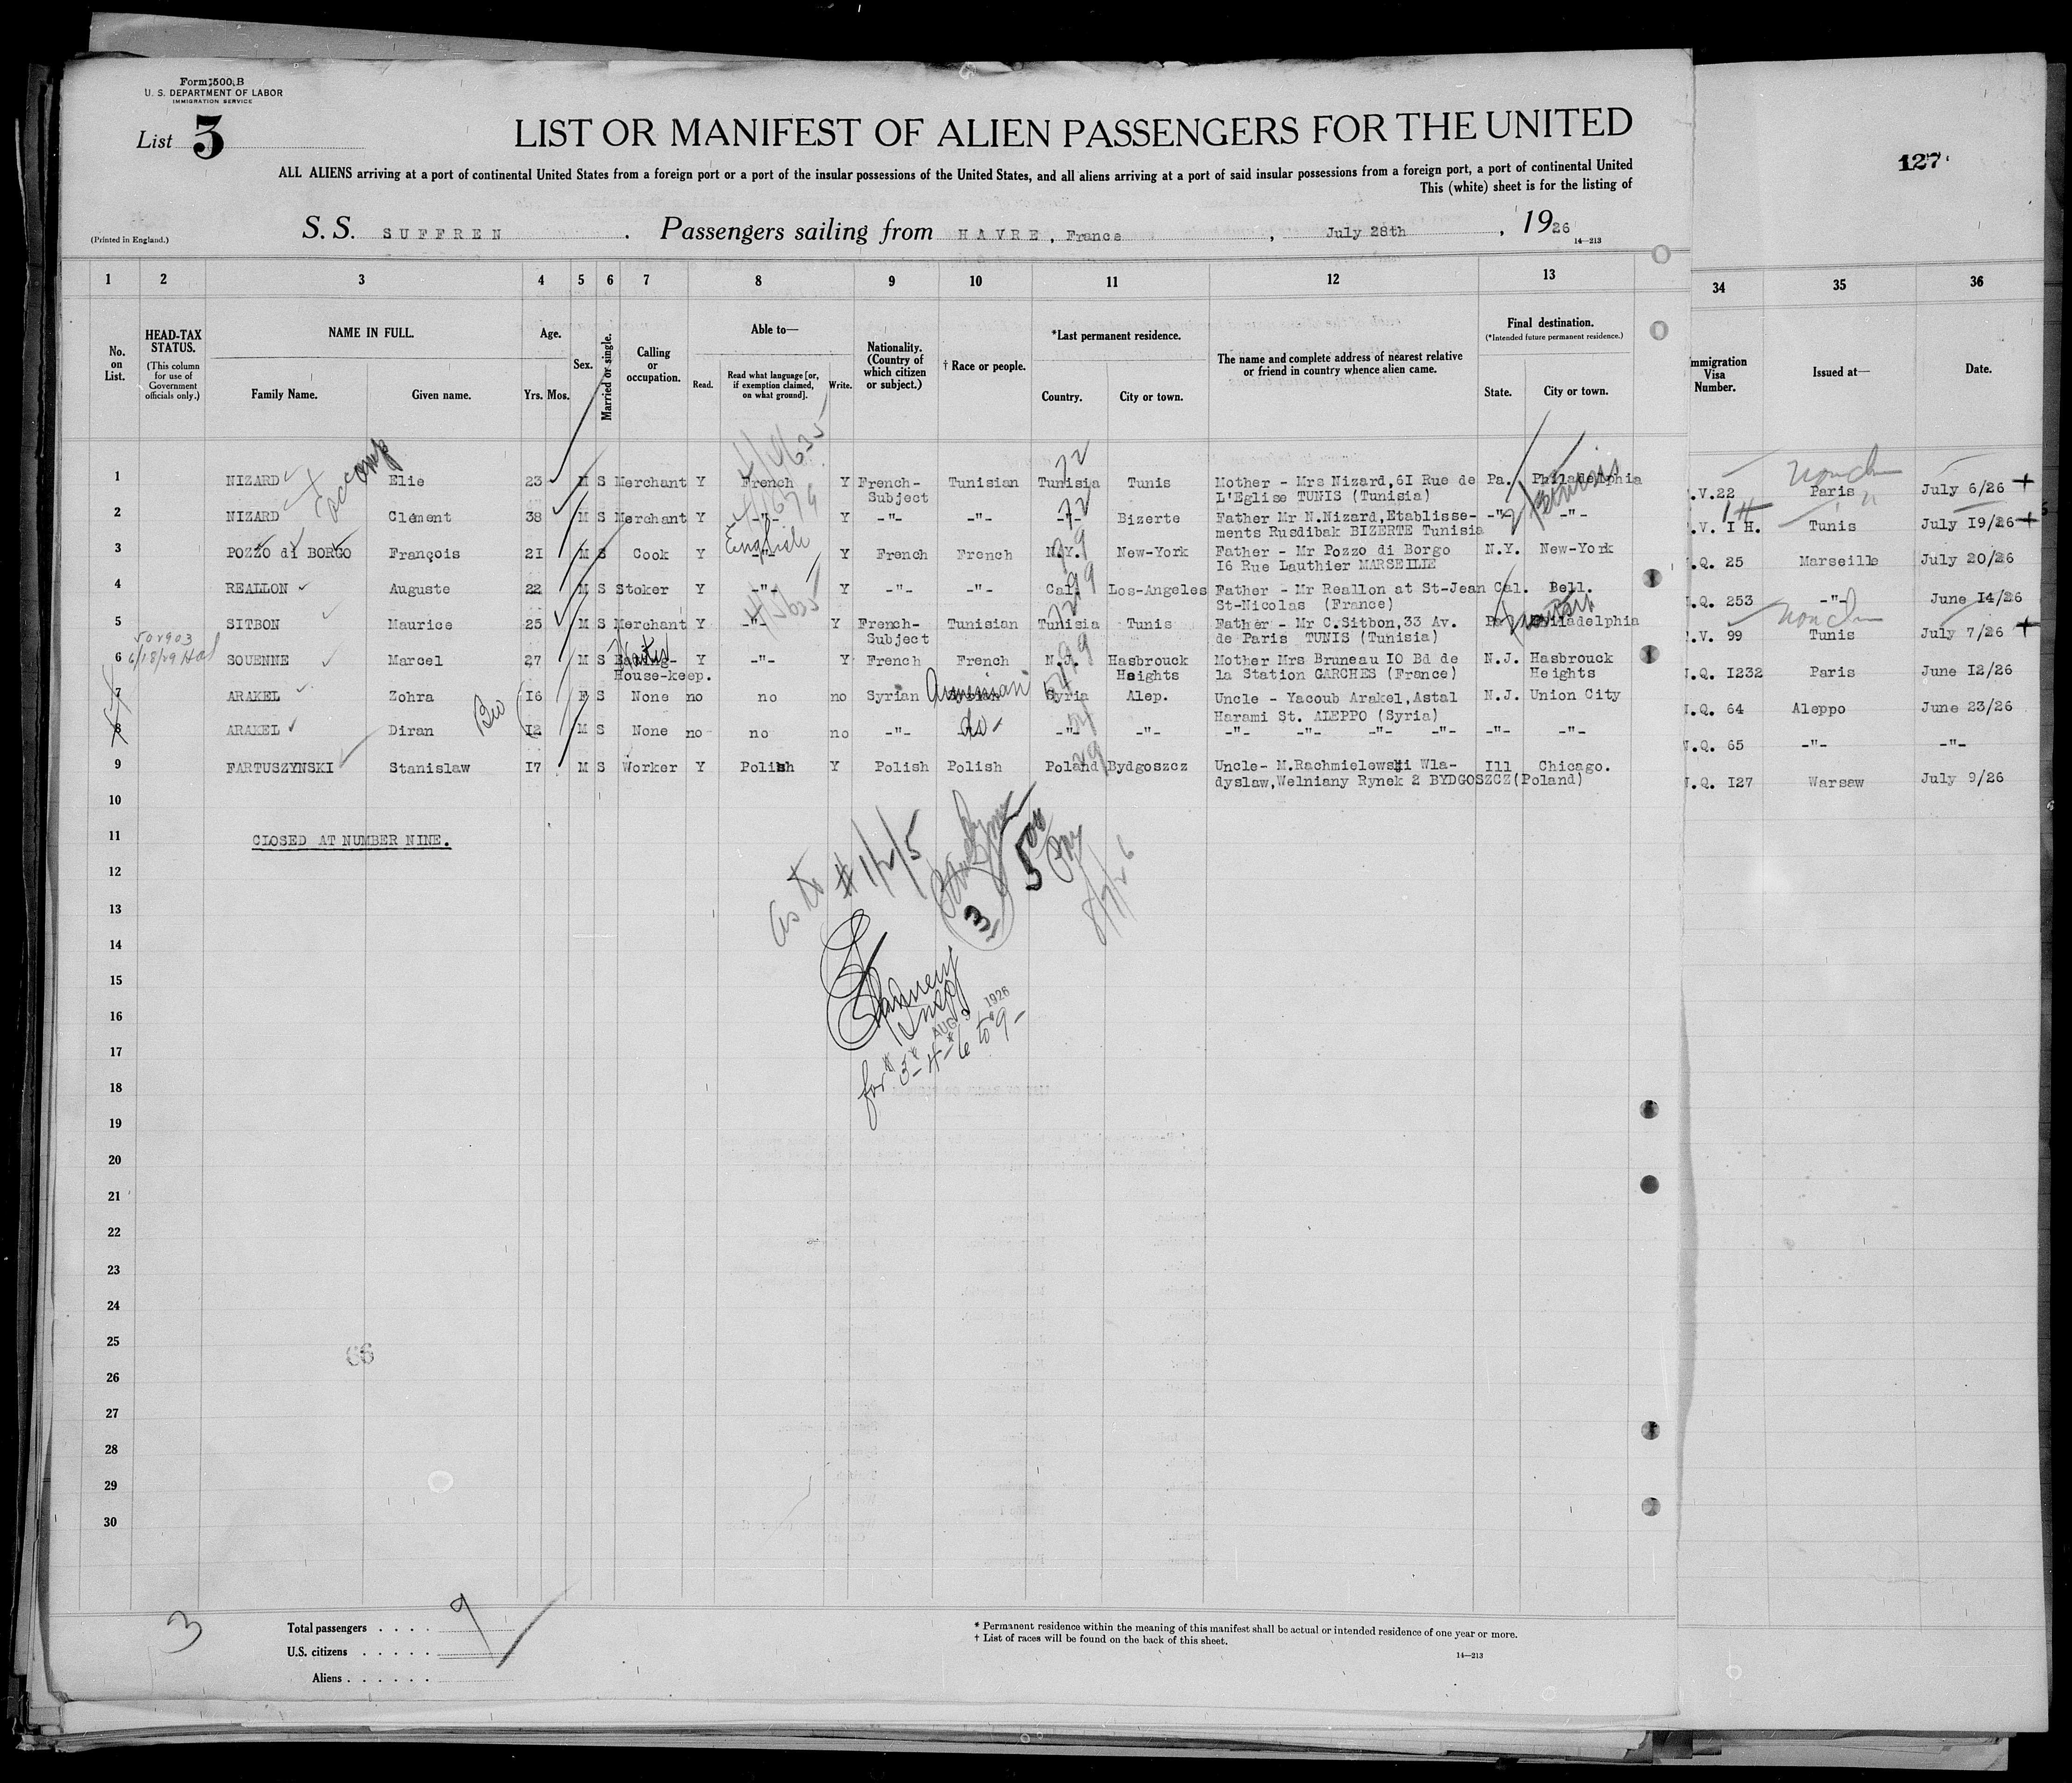 Form 500 B
U. S. DEPARTMENT OF LABOR
IMMIGRATION SERVICE
List 3
LIST OR MANIFEST OF ALIEN PASSENGERS FOR THE UNITED
ALL ALIENS arriving at a port of continental United States from a foreign port or a port of the insular possessions of the United States, and all aliens arriving at a port of said insular possessions from a foreign port, a port of continental United
This (white) sheet is for the listing of
127
(Printed in England.)
S. S. SUFFREN . Passengers sailing from HAVRE, France , July 28th , 1926
14—213
1 2 3 4 5 6 7 8 9 10 11 12 13 34 35 36
No. on List.
HEAD-TAX STATUS.
(This column for use of Government officials only.)
NAME IN FULL.
Family Name. Given name.
Age.
Yrs. Mos.
Sex.
Married or single.
Calling or occupation.
Able to—
Read. Read what language [or, if exemption claimed, on what ground]. Write.
Nationality. (Country of which citizen or subject.)
† Race or people.
*Last permanent residence.
Country. City or town.
The name and complete address of nearest relative or friend in country whence alien came.
Final destination.
(*Intended future permanent residence.)
State. City or town.
mmigration Visa Number.
Issued at—
Date.
1 NIZARD Elie 23 M S Merchant Y French Y French- Tunisian Tunisia Tunis Mother - Mrs Nizard,6I Rue de Pa. Philadelphia .V.22 Paris July 6/26 +
Subject L'Eglise TUNIS (Tunisia)
2 NIZARD Clément 38 M S Merchant Y -"- Y -"- -"- -"- Bizerte Father Mr N.Nizard,Etablisse- -"- -"- .V. I H. Tunis July I9/26 +
ments Rusdibak BIZERTE Tunisia
English
3 POZZO di BORGO François 2I M S Cook Y -"- Y French French N.Y. New-York Father - Mr Pozzo di Borgo N.Y. New-York .Q. 25 Marseille July 20/26
I6 Rue Lauthier MARSEILLE
4 REALLON Auguste 22 M S Stoker Y -"- Y -"- -"- Cal. Los-Angeles Father - Mr Reallon at St-Jean Cal. Bell. .Q. 253 -"- June I4/26
St-Nicolas (France)
5 SITBON Maurice 25 M S Merchant Y -"- Y French- Tunisian Tunisia Tunis Father - Mr C.Sitbon,33 Av. Pa. Philadelphia .V. 99 Tunis July 7/26 +
Subject de Paris TUNIS (Tunisia)
6 SOUENNE Marcel 27 M S Eating- Y -"- Y French French N.J. Hasbrouck Mother Mrs Bruneau I0 Bd de N.J. Hasbrouck .Q. I232 Paris June I2/26
House-keep. Heights la Station GARCHES (France) Heights
7 ARAKEL Zohra I6 F S None no no no Syrian Armenian Syria Alep. Uncle - Yacoub Arakel,Astal N.J. Union City .Q. 64 Aleppo June 23/26
Harami St. ALEPPO (Syria)
8 ARAKEL Diran I2 M S None no no no -"- do- -"- -"- -"- -"- -"- -"- -"- -"- .Q. 65 -"- -"-
9 FARTUSZYNSKI Stanislaw I7 M S Worker Y Polish Y Polish Polish Poland Bydgoszcz Uncle- M.Rachmielewski Wla- Ill Chicago. .Q. I27 Warsaw July 9/26
dyslaw,Welniany Rynek 2 BYDGOSZCZ(Poland)
10
11 CLOSED AT NUMBER NINE.
12
13
14
15
16
17
18
19
20
21
22
23
24
25
26
27
28
29
30
as to # 1/2/5
3
AUG 1926
for # 3-4-6 to 9-
66
3
Total passengers . . . . 9
U.S. citizens . . . . .
Aliens . . . . . .
* Permanent residence within the meaning of this manifest shall be actual or intended residence of one year or more.
† List of races will be found on the back of this sheet.
14—213